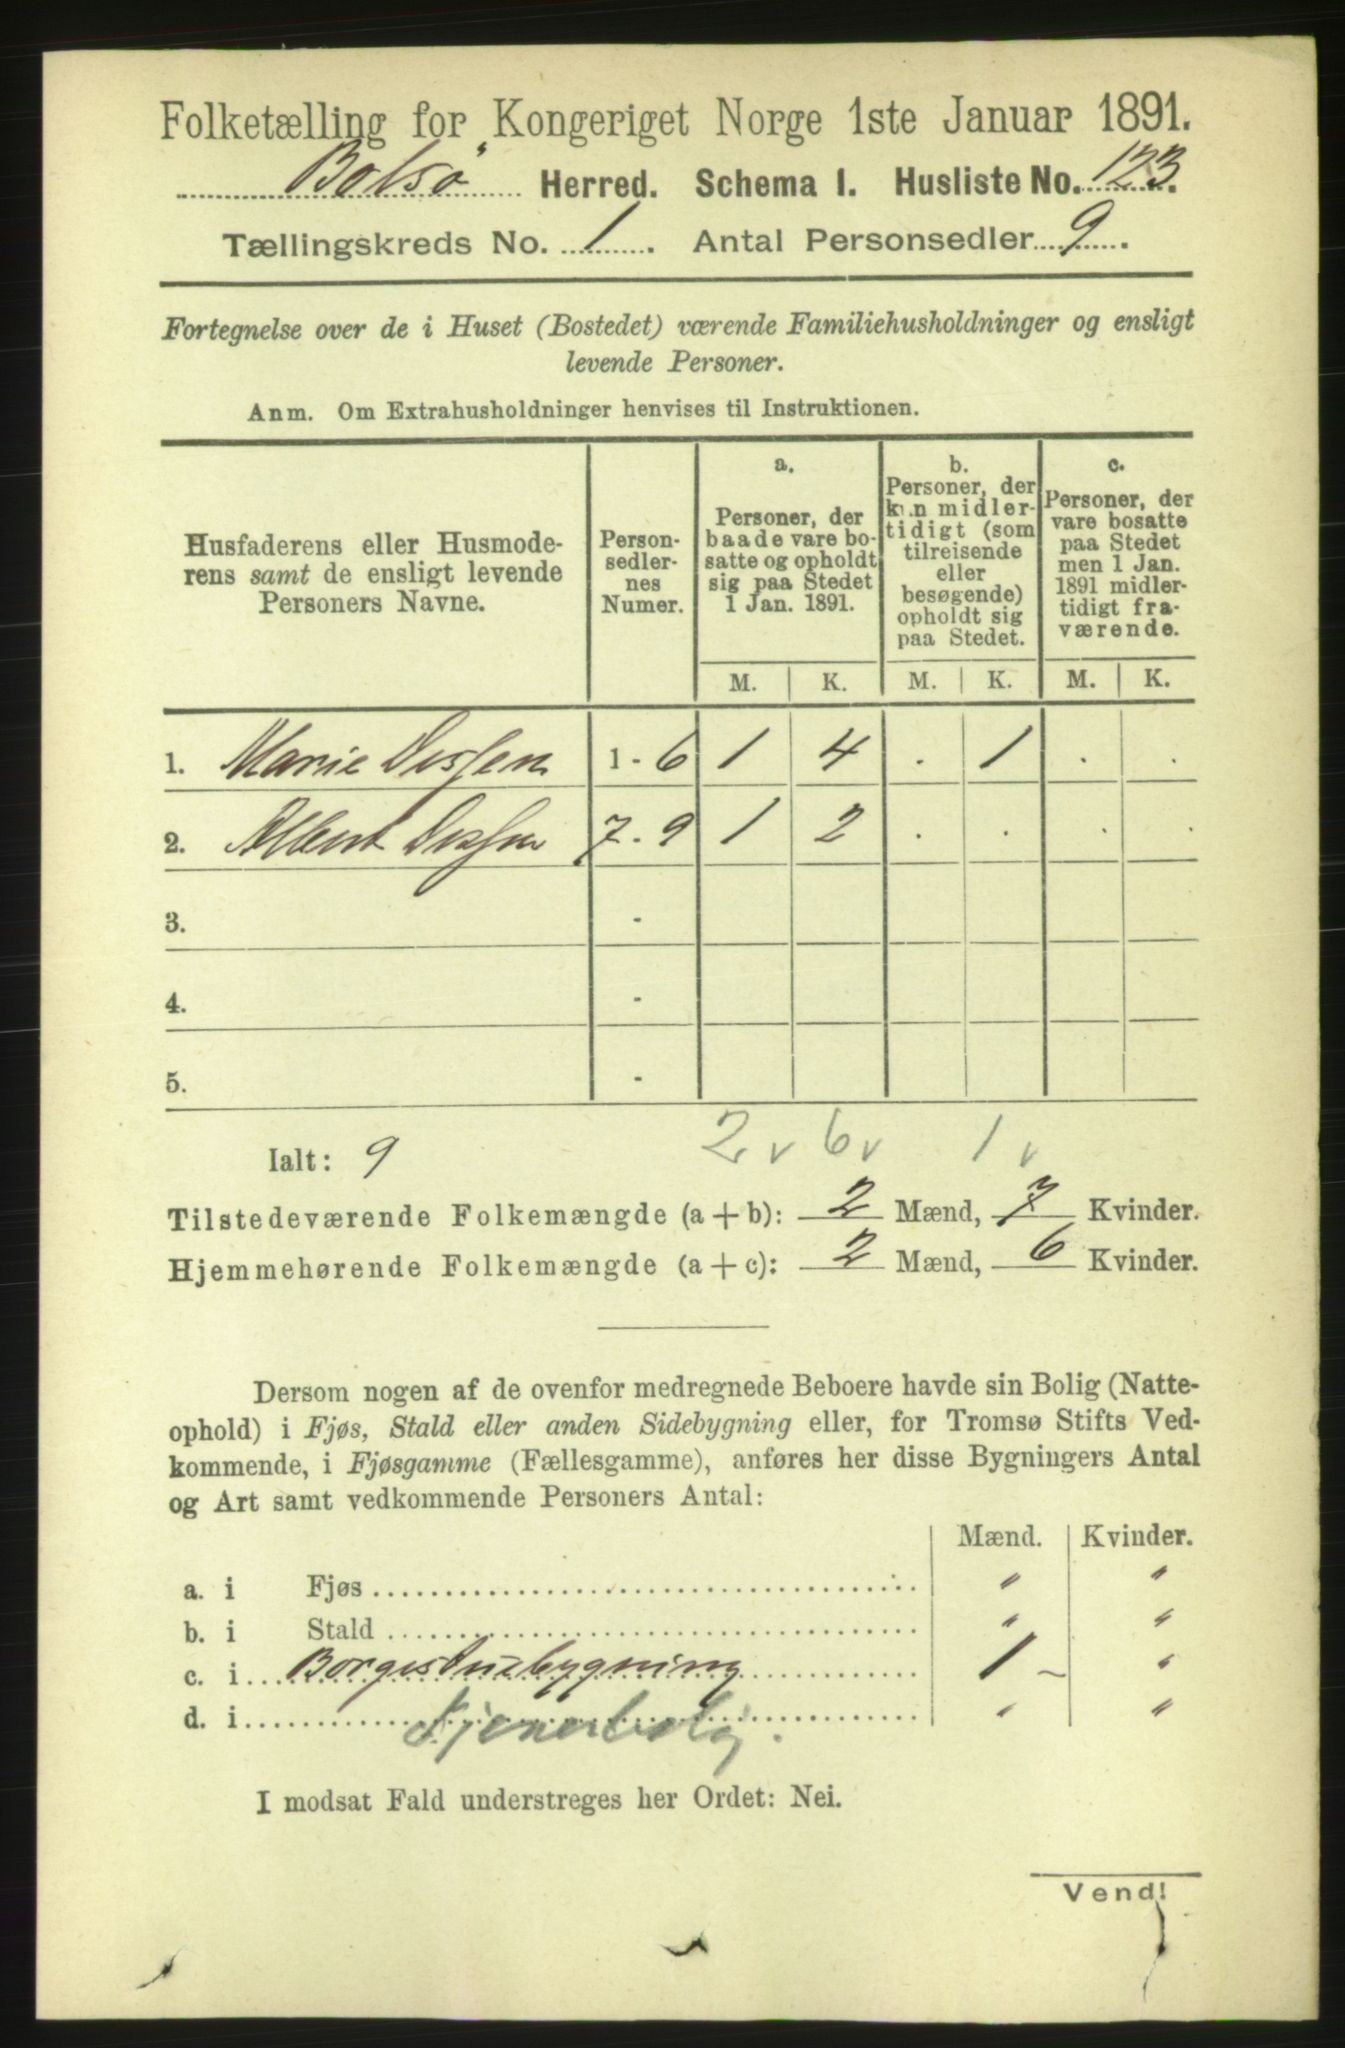 Folketælling for Kongeriget Norge 1ste Januar 1891.
Bolsø Herred. Schema I. Husliste No. 123.
Tællingskreds No. 1. Antal Personsedler 9.
Fortegnelse over de i Huset (Bostedet) værende Familiehusholdninger og ensligt
levende Personer.
Anm. Om Extrahusholdninger henvises til Instruktionen.
Husfaderens eller Husmode-
rens samt de ensligt levende
Personers Navne.
Person-
sedler-
nes
Numer.
a.
Personer, der
baade vare bo-
satte og opholdt
sig paa Stedet
1 Jan. 1891.
b.
Personer, der
kun midler-
tidigt (som
tilreisende
eller
besøgende)
opholdt sig
paa Stedet.
c.
Personer, der
vare bosatte
paa Stedet
men 1 Jan.
1891 midler-
tidigt fra-
værende.
M. K. M. K. M. K.
1. Marie Dessen 1 - 6 1 4 . 1 . .
2. Albert Dessen 7 - 9 1 2 . . . .
3. -
4. -
5. -
2 v 6 v 1 v
Ialt: 9
Tilstedeværende Folkemængde (a + b): 2 Mænd, 7 Kvinder.
Hjemmehørende Folkemængde (a + c): 2 Mænd, 6 Kvinder.
Dersom nogen af de ovenfor medregnede Beboere havde sin Bolig (Natte-
ophold) i Fjøs, Stald eller anden Sidebygning eller, for Tromsø Stifts Ved-
kommende, i Fjøsgamme (Fællesgamme), anføres her disse Bygningers Antal
og Art samt vedkommende Personers Antal:
Mænd. Kvinder.
a. i Fjøs " "
b. i Stald " "
c. i Borgestuebygning 1 - "
d. i " "
Tjenerbolig.
I modsat Fald understreges her Ordet: Nei.
Vend!